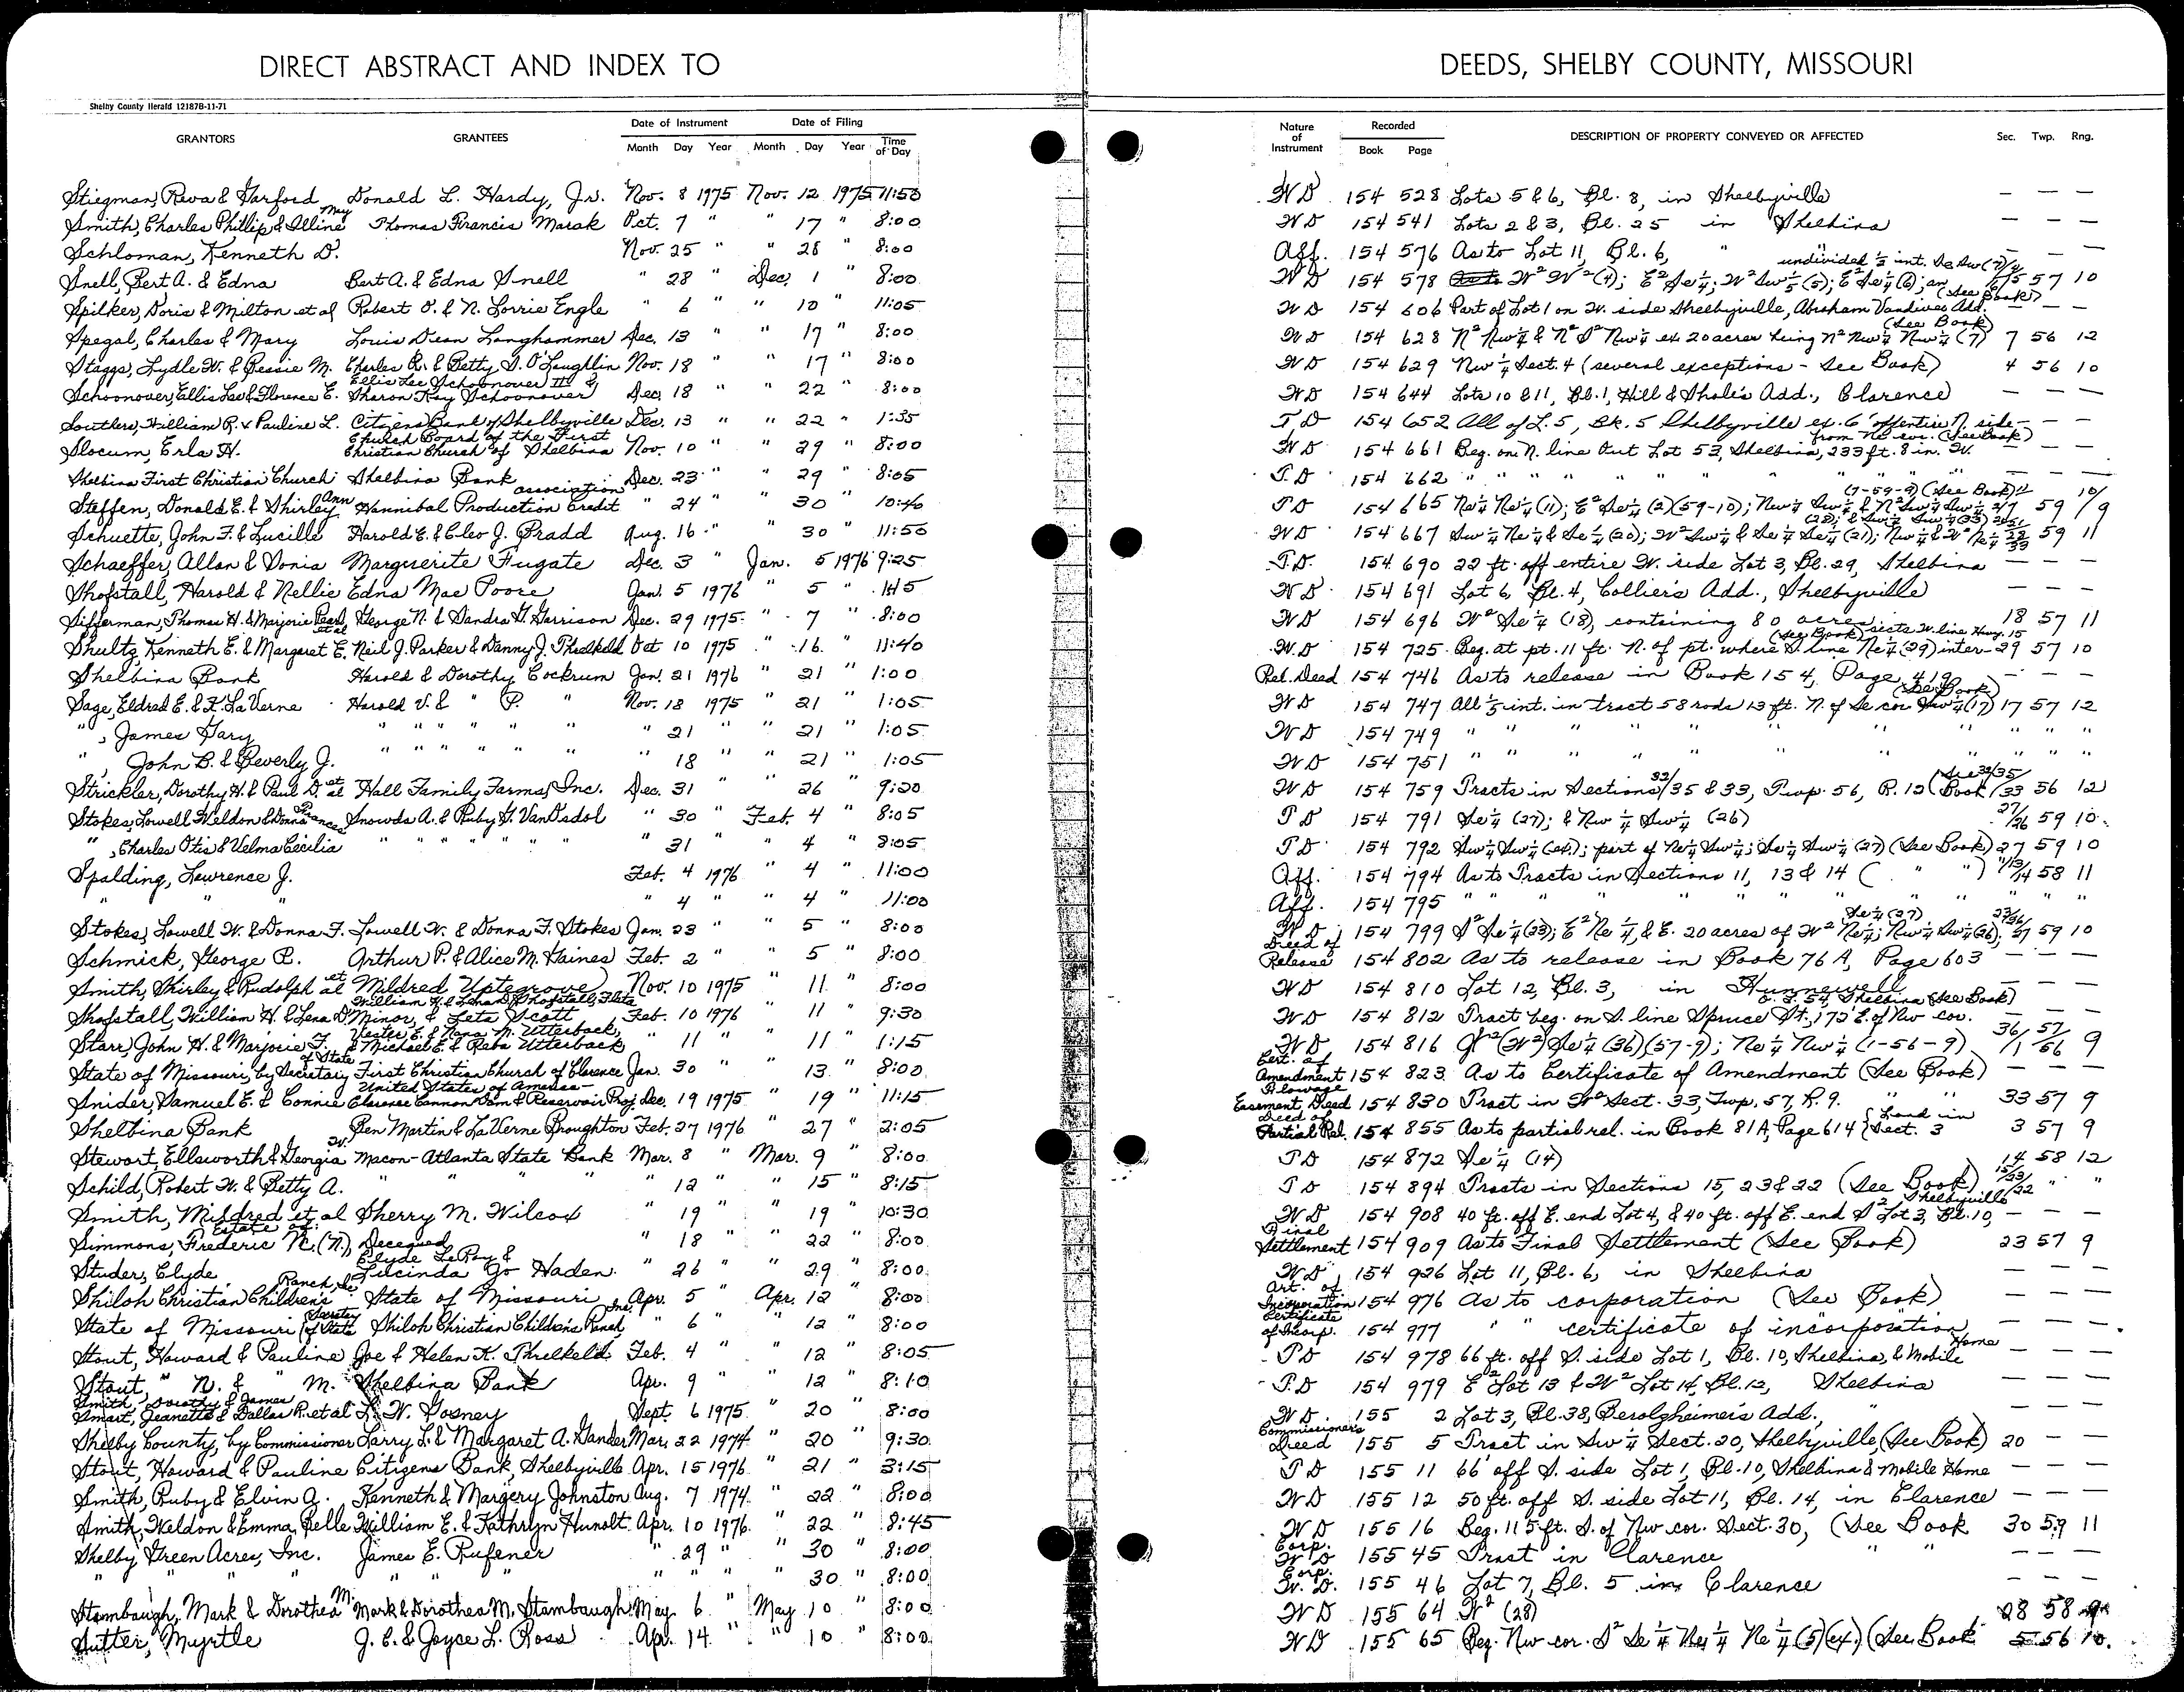 DIRECT ABSTRACT AND INDEX TO DEEDS, SHELBY COUNTY, MISSOURI
Shelby County Herald 12187B-11-71
GRANTORS GRANTEES Date of Instrument Month Day Year Date of Filing Month Day Year Time of Day Nature of Instrument Recorded Book Page DESCRIPTION OF PROPERTY CONVEYED OR AFFECTED Sec. Twp. Rng.
Stiegman, Reva & Garford Donald L. Hardy, Jr. Nov. 8 1975 Nov. 12 1975 11:50 WD 154 528 Lots 5 & 6, Bl. 8, in Shelbyville — — —
Smith, Charles Phillip & Alline May Thomas Francis Marak Oct. 7 " " 17 " 8:00 WD 154 541 Lots 2 & 3, Bl. 25 in Shelbina — — —
Schloman, Kenneth D. Nov. 25 " " 28 " 8:00 Aff. 154 576 As to Lot 11, Bl. 6, " — — —
Snell, Bert A. & Edna Bert A. & Edna Snell " 28 " Dec. 1 " 8:00 WD 154 578 W² W² (4); E² Se¼; W² Sw¼ (5); E² Se¼ (6); an undivided ½ int. Se Sw (See Book) 57 10
Spilker, Doris & Milton et al Robert O. & N. Lorrie Engle " 6 " " 10 " 11:05 WD 154 606 Part of Lot 1 on W. side Shelbyville, Abraham Vandiver Add. (See Book) — —
Spegal, Charles & Mary Louis Dean Langhammer Dec. 13 " " 17 " 8:00 WD 154 628 N² Nw¼ & N² S² Nw¼ ex 20 acres being N² Nw¼ Nw¼ (7) 7 56 12
Staggs, Lydle W. & Bessie M. Charles R. & Betty S. O'Laughlin Nov. 18 " " 17 " 8:00 WD 154 629 Nw¼ Sect. 4 (several exceptions - See Book) 4 56 10
Schoonover, Ellis Lee & Florence E. Ellis Lee Schoonover III & Sharon Kay Schoonover Dec. 18 " " 22 " 8:00 WD 154 644 Lots 10 & 11, Bl. 1, Hill & Shale's Add., Clarence — — —
Southers, William R. & Pauline L. Citizens Bank of Shelbyville Dec. 13 " " 22 " 1:35 TD 154 652 All of L. 5, Bk. 5 Shelbyville ex. 6' off entire N. side — — —
Slocum, Erla H. Church Board of the First Christian Church of Shelbina Nov. 10 " " 29 " 8:00 WD 154 661 Beg. on N. line Out Lot 53, Shelbina, 233 ft. 8 in. W. from Ne cor. (See Book) — —
Shelbina First Christian Church Shelbina Bank Dec. 23 " " 29 " 8:05 T.D 154 662 " " " " " " " — — —
Steffen, Donald E. & Shirley Ann Hannibal Production Credit association " 24 " " 30 10:40 TD 154 665 Ne¼ Ne¼ (11); E² Se¼ (2) (59-10); Nw¼ Sw¼ & N² Sw¼ Sw¼ (7-59-9) (See Book) 59 10/9
Schuette, John F. & Lucille Harold E. & Cleo J. Bradd Aug. 16 " " 30 " 11:50 WD 154 667 Sw¼ Ne¼ & Se¼ (20); W² Sw¼ & Se¼ Se¼ (21); Nw¼ & W² Ne¼ (28); & Sw¼ Sw¼ (33) 59 11
Schaeffer, Allan & Sonia Marguerite Fugate Dec. 3 " Jan. 5 1976 9:25 T.D. 154 690 22 ft. off entire W. side Lot 3, Bl. 29, Shelbina — — —
Shofstall, Harold & Nellie Edna Mae Poore Jan. 5 1976 " 5 " 1:45 WD 154 691 Lot 6, Bl. 4, Collier's Add., Shelbyville — — —
Sifferman, Thomas H. & Marjorie Pearl et al George N. & Sandra G. Garrison Dec. 29 1975 " 7 " 8:00 WD 154 696 W² Se¼ (18), containing 80 acres 18 57 11
Shultz, Kenneth E. & Margaret E. Neil J. Parker & Danny J. Threlkeld Oct 10 1975 " 16 " 11:40 W.D 154 725 Beg. at pt. 11 ft. N. of pt. where S. line Ne¼ (29) intersects W. line Hwy. 15 (See Book) 29 57 10
Shelbina Bank Harold & Dorothy Cockrum Jan. 21 1976 " 21 " 1:00 Rel. Deed 154 746 As to release in Book 154, Page 419 — — —
Sage, Eldred E. & F. LaVerne Harold V. & " P. " Nov. 18 1975 " 21 1:05 WD 154 747 All ⅓ int. in tract 58 rods 13 ft. N. of Se cor. Sw¼ (17) (See Book) 17 57 12
" , James Gary " " " " " " 21 " " 21 " 1:05 WD 154 749 " " " " " " " " " "
" , John B. & Beverly J. " " " " " " 18 " " 21 " 1:05 WD 154 751 " " " " " " " " " "
Strickler, Dorothy H. & Paul D. et al Hall Family Farms, Inc. Dec. 31 " " 26 " 9:20 WD 154 759 Tracts in Sections 32/35 & 33, Twp. 56, R. 12 (See Book) 32/35/33 56 12
Stokes, Lowell Weldon & Donna Frances Snowda A. & Ruby G. VanOsdol " 30 " Feb. 4 " 8:05 TD 154 791 Se¼ (27); & Nw¼ Sw¼ (26) 27/26 59 10
" , Charles Otis & Velma Cecilia " " " " " " 31 " 4 " 8:05 TD 154 792 Sw¼ Sw¼ (ex.); part of Ne¼ Sw¼; Se¼ Sw¼ (27) (See Book) 27 59 10
Spalding, Lawrence J. Feb. 4 1976 " 4 " 11:00 Aff. 154 794 As to Tracts in Sections 11, 13 & 14 ( " " ) 11/13/14 58 11
" " " " 4 " " 4 " 11:00 Aff. 154 795 " " " " " " " " " "
Stokes, Lowell W. & Donna F. Lowell W. & Donna F. Stokes Jan. 23 " " 5 " 8:00 WD 154 799 S² Se¼ (23); E² Ne¼, & E. 20 acres of W² Ne¼; Nw¼ Sw¼ (26); Se¼ (27) 23/26/27 59 10
Schmick, George R. Arthur P. & Alice M. Haines Feb. 2 " " 5 " 8:00 Deed of Release 154 802 As to release in Book 76A, Page 603 — — —
Smith, Shirley & Rudolph et al Mildred Uptegrove Nov. 10 1975 " 11 " 8:00 WD 154 810 Lot 12, Bl. 3, in Hunnewell — — —
Shofstall, William H. & Lena D. William H. & Lena D. Shofstall, Fleta Minor, & Leta Scott Feb. 10 1976 " 11 " 9:30 WD 154 812 Tract beg. on S. line Spruce St., 173' E. of Nw cor. O. L. 54, Shelbina (See Book) — — —
Starr, John H. & Marjorie F. Vester E. & Nana M. Utterback, & Michael E. & Reba Utterback " 11 " " 11 " 1:15 WD 154 816 W² (W²) Se¼ (36) (57-9); Ne¼ Nw¼ (1-56-9) 36/1 57/56 9
State of Missouri, by Secretary of State First Christian Church of Clarence Jan. 30 " " 13 " 8:00 Cert. of Amendment 154 823 As to Certificate of Amendment (See Book) — — —
Snider, Samuel E. & Connie United States of America- Clarence Cannon Dam & Reservoir Proj. Dec. 19 1975 " 19 " 11:15 Flowage Easement Deed 154 830 Tract in W² Sect. 33, Twp. 57, R. 9. " " 33 57 9
Shelbina Bank Ben Martin & LaVerne Broughton Feb. 27 1976 " 27 " 2:05 Deed of Partial Rel. 154 855 As to partial rel. in Book 81A, Page 614 {Land in Sect. 3 3 57 9
Stewart, Ellsworth & Georgia W. Macon-Atlanta State Bank Mar. 8 " Mar. 9 " 8:00 TD 154 872 Se¼ (14) 14 58 12
Schild, Robert W. & Betty A. " " " " 12 " " 15 " 8:15 TD 154 894 Tracts in Sections 15, 23 & 22 (See Book) 15/23/22 " "
Smith, Mildred et al Sherry M. Wilcox " 19 " 19 " 10:30 WD 154 908 40 ft. off E. end Lot 4, & 40 ft. off E. end S² Lot 3, Bl. 10, Shelbyville — — —
Simmons, Frederic N. (N.), Estate of: Deceased " 18 " 22 " 8:00 Final Settlement 154 909 As to Final Settlement (See Book) 23 57 9
Studer, Clyde Clyde LeRoy & Lucinda Jo Haden " 26 " " 29 " 8:00 WD 154 926 Lot 11, Bl. 6, in Shelbina — — —
Shiloh Christian Children's Ranch, Inc. State of Missouri Apr. 5 " Apr. 12 " 8:00 Art. of Incorporation 154 976 As to corporation (See Book) — — —
State of Missouri (Secretary of State Shiloh Christian Children's Ranch, Inc. " 6 " " 12 " 8:00 Certificate of Incorp. 154 977 " " certificate of incorporation — — —
Stout, Howard & Pauline Joe & Helen K. Threlkeld Feb. 4 " " 12 " 8:05 TD 154 978 66 ft. off S. side Lot 1, Bl. 10, Shelbina, & Mobile Home — — —
Stout, " N. & " M. Shelbina Bank Apr. 9 " " 12 " 8:10 T.D 154 979 E² Lot 13 & W² Lot 14, Bl. 12, Shelbina — — —
Smith, Dorothy & James Smart, Jeanette & Dallas R. et al L. W. Gosney Sept. 6 1975 " 20 " 8:00 WD 155 2 Lot 3, Bl. 38, Berolzheimer's Add., " — — —
Shelby County, by Commissioner Larry L. & Margaret A. Gander Mar. 22 1974 " 20 " 9:30 Commissioner's Deed 155 5 Tract in Sw¼ Sect. 20, Shelbyville, (See Book) 20 — —
Stout, Howard & Pauline Citizens Bank, Shelbyville Apr. 15 1976 " 21 " 3:15 TD 155 11 66' off S. side Lot 1, Bl. 10, Shelbina & Mobile Home — — —
Smith, Ruby & Elvin A. Kenneth & Margery Johnston Aug. 7 1974 " 22 " 8:00 WD 155 12 50 ft. off S. side Lot 11, Bl. 14, in Clarence — — —
Smith, Weldon & Emma Belle William E. & Kathryn Hunolt Apr. 10 1976 " 22 " 8:45 WD 155 16 Beg. 115 ft. S. of Nw cor. Sect. 30, (See Book 30 59 11
Shelby Green Acres, Inc. James E. Rufener " 29 " " 30 " 8:00 Corp. WD 155 45 Tract in Clarence " " — — —
" " " " " " " " " " 30 " 8:00 Corp. W.D. 155 46 Lot 7, Bl. 5 in Clarence — — —
Stambaugh, Mark & Dorothea M. Mark & Dorothea M. Stambaugh May 6 " May 10 " 8:00 WD 155 64 W² (28) 28 58 9
Sutter, Myrtle J. C. & Joyce L. Ross Apr. 14 " " 10 " 8:00 WD 155 65 Beg. Nw cor. S² Se¼ Ne¼ Ne¼ (5) (ex.) (See Book 5 56 10.